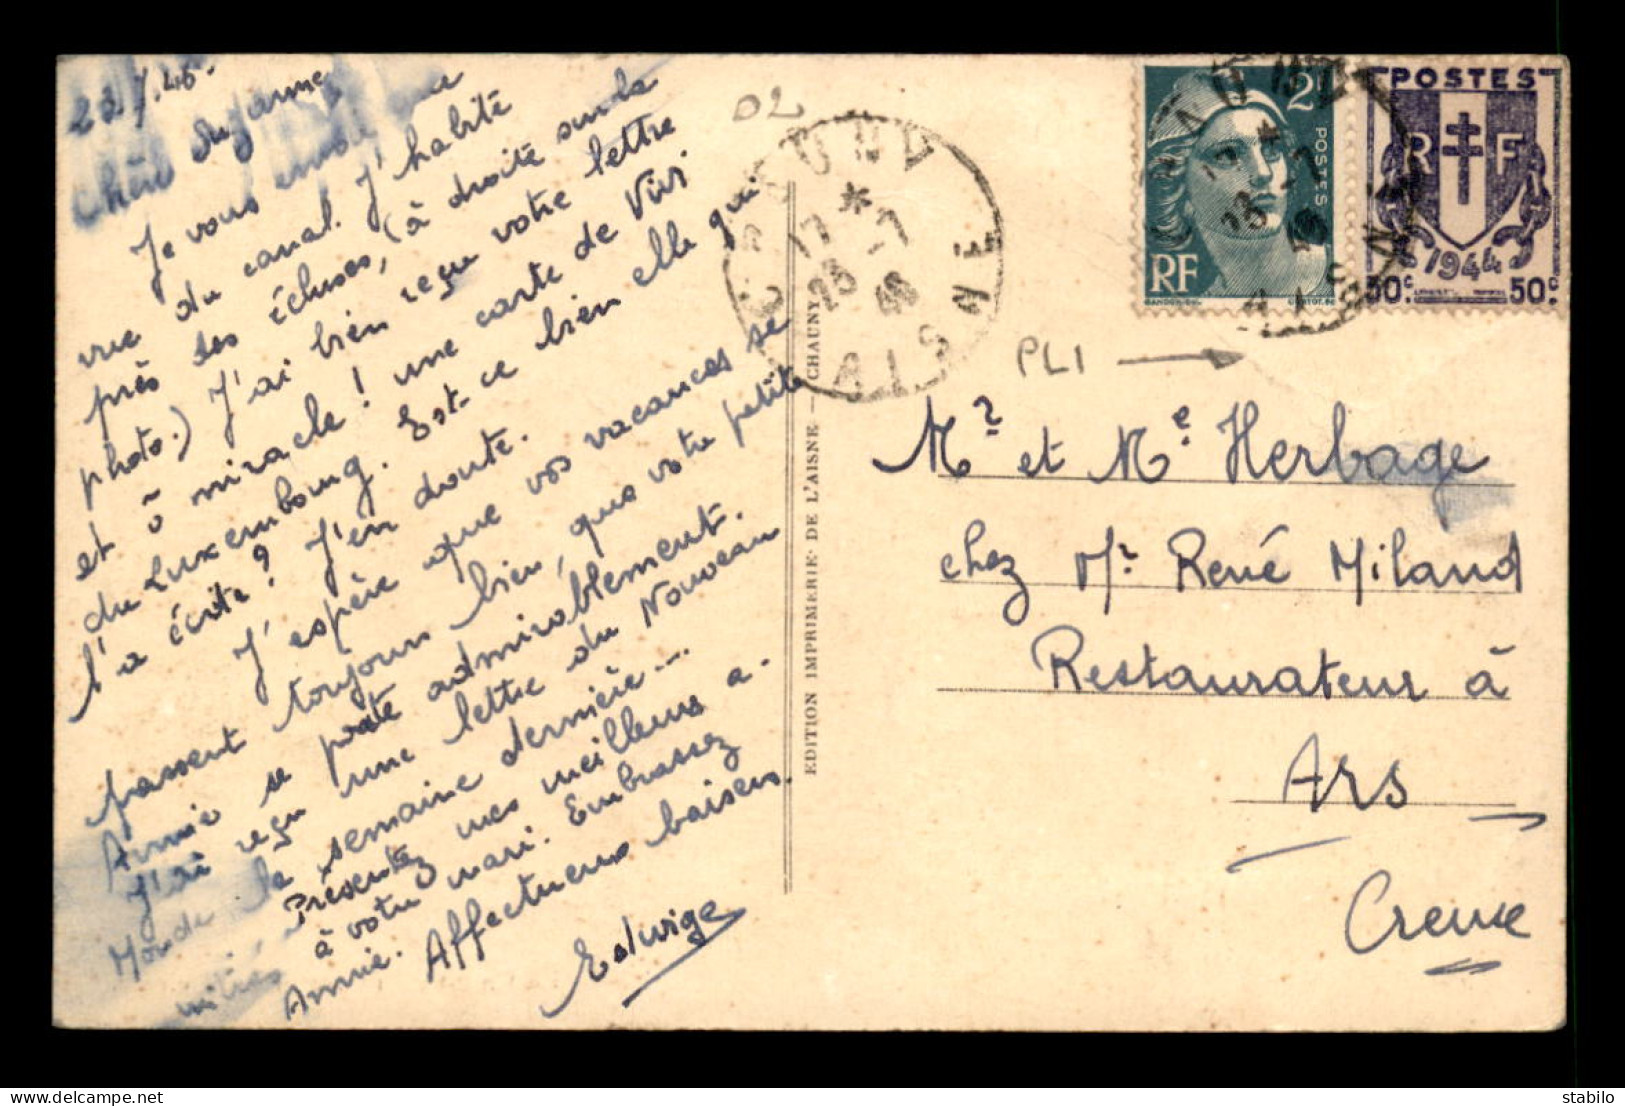 22.7.46.
Chère Suzanne
Je vous envoie une
vue du canal. J'habite
près des écluses, (à droite sur la
photo.) J'ai bien reçu votre lettre
et ô miracle ! une carte de Vivi
du Luxembourg. Est-ce bien elle qui
l'a écrite ? J'en doute.
J'espère que vos vacances se
passent toujours bien, que votre petite
Annie se porte admirablement.
J'ai reçu une lettre du Nouveau
Monde la semaine dernière...
Présentez mes meilleurs a-
mitiés à votre mari. Embrassez
Annie. Affectueux baisers.
Edwige
EDITION IMPRIMERIE DE L'AISNE — CHAUNY
02
CHAUNY
17 *
23 - 7
46
AISNE
2F
POSTES
RF
POSTES
R F
1944
50c. 50c.
CHAUNY
17 *
23 - 7
46
AISNE
PLI
Mr et Me Herbage
chez Mr René Milaud
Restaurateur à
Ars
Creuse
delcampe.net
stabilo